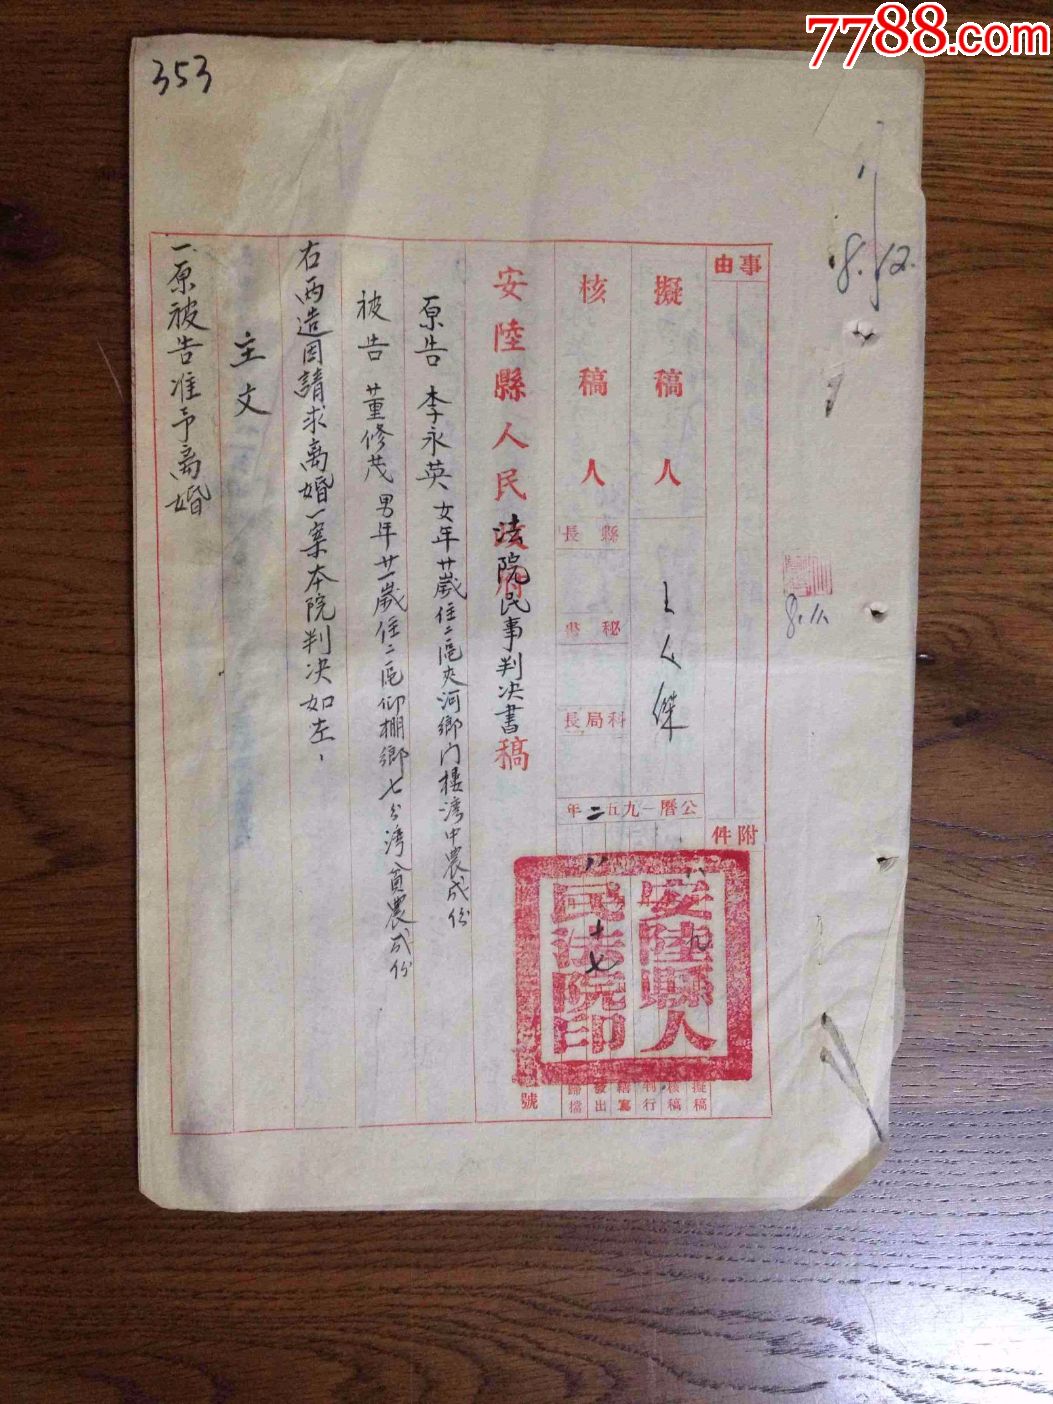 7788.com
353
8.12.
8.11.
事由
附件
擬稿人
王人傑
八 九
核稿人
縣長
秘書
科局長
公曆一九五二年
八 十七
擬稿
核稿
判行
繕寫
發出
歸檔
號
安陸縣人民法院印
安陸縣人民法院民事判決書稿
原告 李永英 女年廿歲住二區夾河鄉门樓湾中農成份
被告 董修茂 男年廿一歲住二區仰棚鄉七公湾貧農成份
右两造因請求离婚一案本院判決如左,
主文
一原被告准予离婚